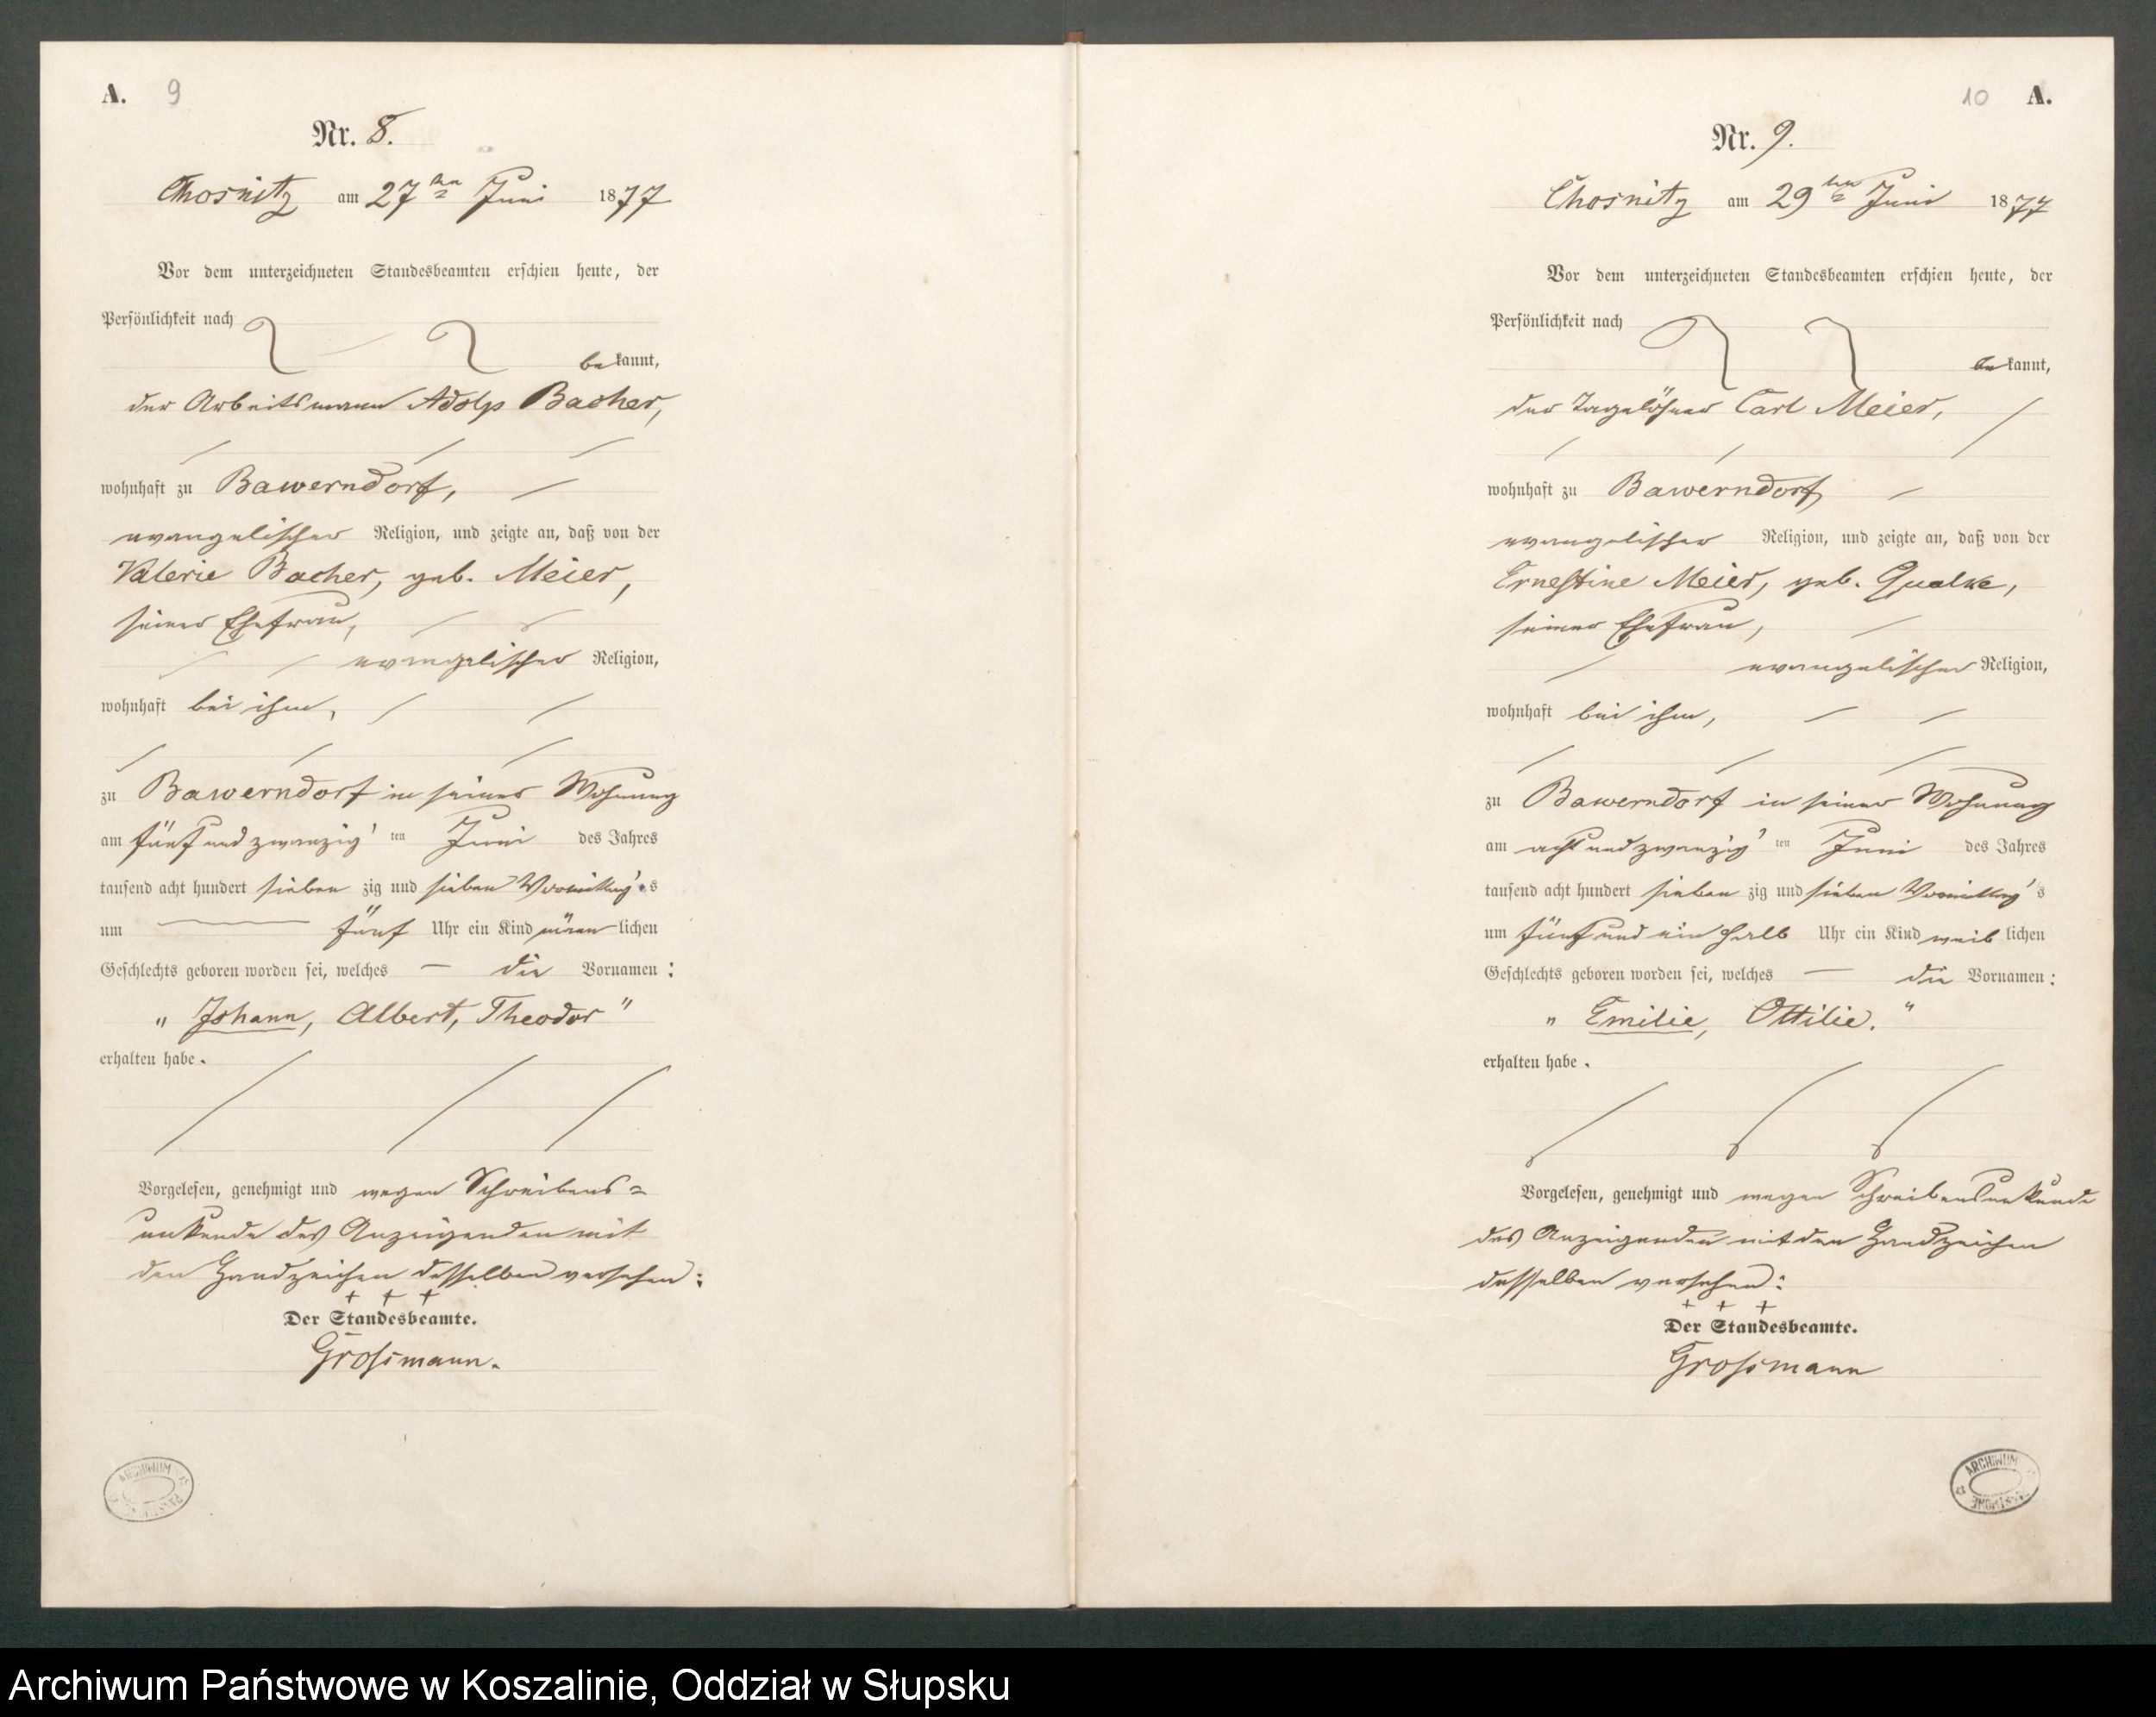 A. 9
Nr. 8.
Chosnitz am 27ten Juni 1877
Vor dem unterzeichneten Standesbeamten erschien heute, der
Persönlichkeit nach
bekannt,
der Arbeitsmann Adolf Bacher,
wohnhaft zu Bawerndorf,
evangelischer Religion, und zeigte an, daß von der
Valerie Bacher, geb. Meier,
seiner Ehefrau,
evangelischer Religion,
wohnhaft bei ihm,
zu Bawerndorf in seiner Wohnung
am fünf und zwanzig'ten Juni des Jahres
tausend acht hundert sieben zig und sieben Vormittag's
um fünf Uhr ein Kind männlichen
Geschlechts geboren worden sei, welches — die Vornamen:
„Johann, Albert, Theodor"
erhalten habe.
Vorgelesen, genehmigt und wegen Schreibens=
unkunde des Anzeigenden mit
den Handzeichen desselben versehen:
+ + +
Der Standesbeamte.
Grossmann.
ARCHIWUM
10 A.
Nr. 9.
Chosnitz am 29ten Juni 1877
Vor dem unterzeichneten Standesbeamten erschien heute, der
Persönlichkeit nach
bekannt,
der Tagelöhner Carl Meier,
wohnhaft zu Bawerndorf
evangelischer Religion, und zeigte an, daß von der
Ernestine Meier, geb. Qualke,
seiner Ehefrau,
evangelischer Religion,
wohnhaft bei ihm,
zu Bawerndorf in seiner Wohnung
am acht und zwanzig'ten Juni des Jahres
tausend acht hundert sieben zig und sieben Vormittag's
um fünf und ein halb Uhr ein Kind weiblichen
Geschlechts geboren worden sei, welches — die Vornamen:
„Emilie, Ottilie."
erhalten habe.
Vorgelesen, genehmigt und wegen Schreibensunkunde
des Anzeigenden mit den Handzeichen
desselben versehen:
+ + +
Der Standesbeamte.
Grossmann
ARCHIWUM
Archiwum Państwowe w Koszalinie, Oddział w Słupsku